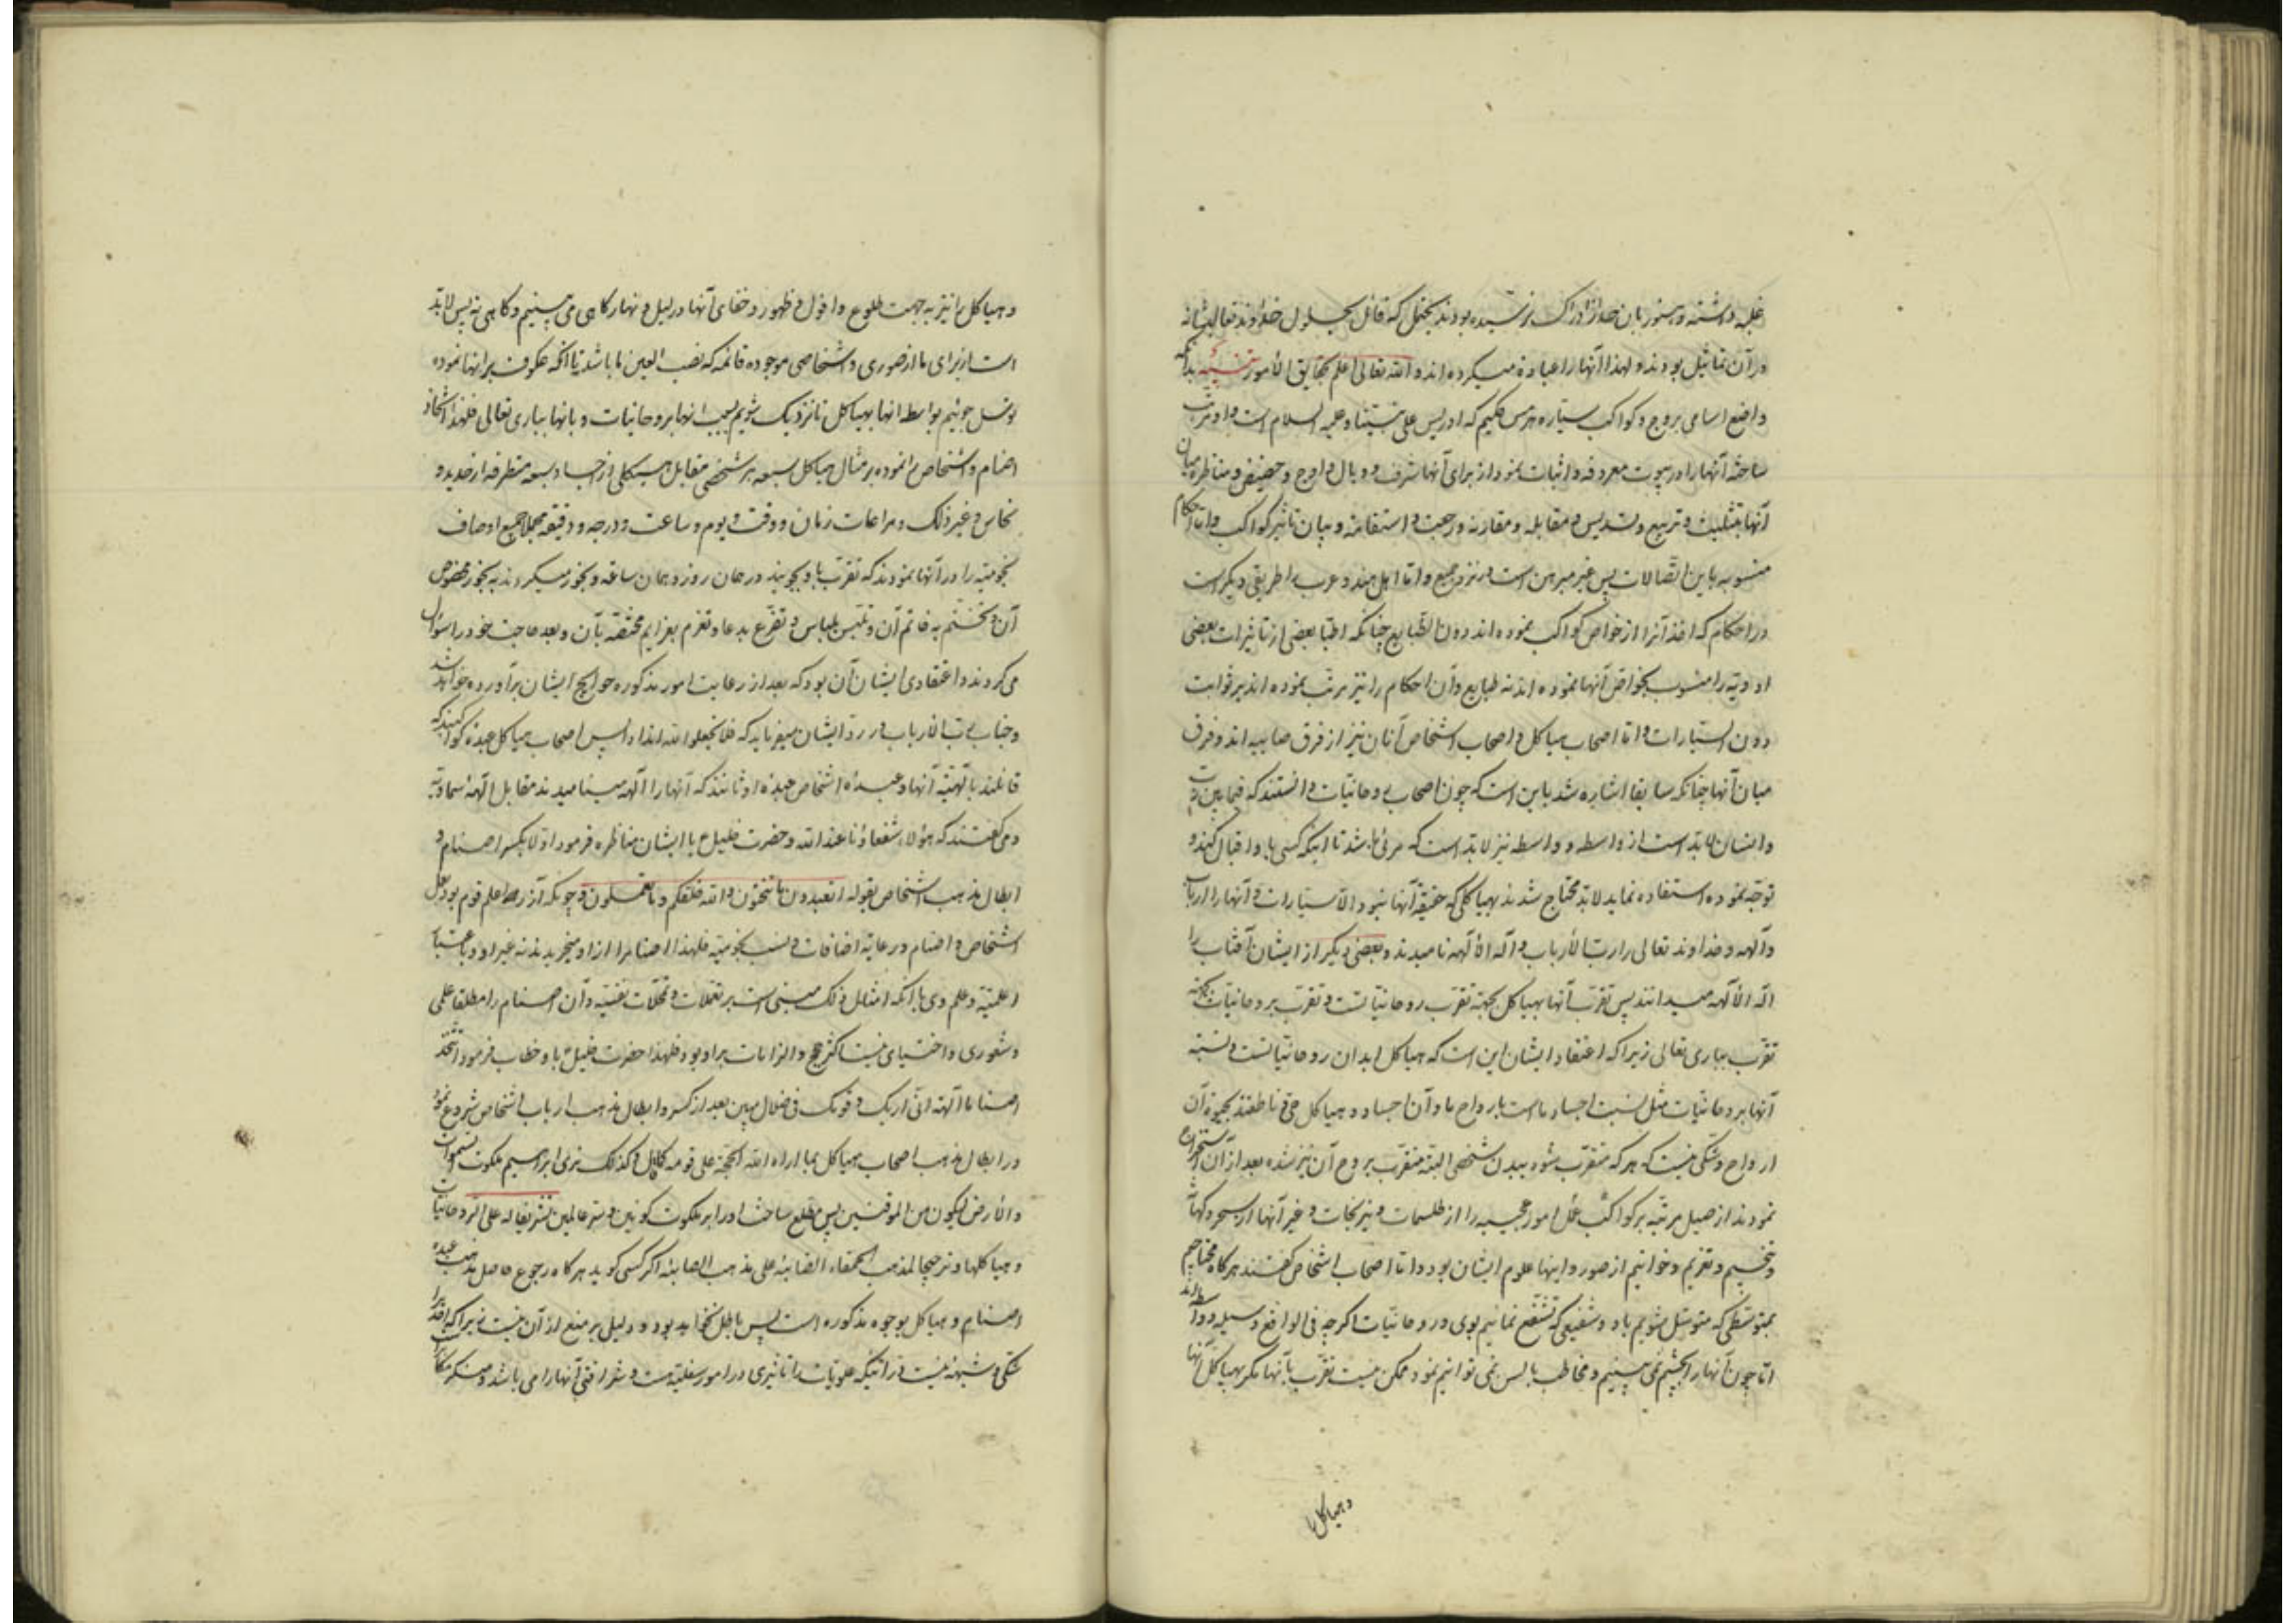 غلبه داشته و هنوز بان خدا از ادراک نرسیده بودند بحیثی که قائل بحلول خداوند تعالی شانه
در آن تماثیل بودند و لهذا آنها را عبادة میکرده اند و الله تعالی اعلم بحقایق الأمور تنبیه بدانکه
واضع اسامی بروج و کواکب سیاره هرمس حکیم که ادریس علی نبینا و علیه السلام است و او مرتب
ساخته آنها را در بیوت معروفه و اثبات نمود از برای آنها شرف و وبال و اوج و حضیض و مناظره میان
آنها بتثلیث و تربیع و تسدیس و مقابله و مقارنه و رجعت و استقامة و بیان تاثیر کواکب و اما احکام
منسوبه باین اتصالات پس غیر مبرهن است در نزد جمیع و اما اهل هند و عرب را طریقی دیگر است
در احکام که اخذ آنرا از خواص کواکب نموده اند دون الطبایع چنانکه اطبا بعضی از تاثیرات بعضی
ادویه را منسوب بخواص آنها نموده اند نه طبایع و آن احکام را نیز مرتب نموده اند بر ثوابت
دون السیارات و اما اصحاب هیاکل و اصحاب اشخاص آنان نیز از فرق صابیه اند و فرق
میان آنها چنانکه سابقا اشاره شد باین است که چون اصحاب روحانیات دانستند که فیما بین
و انسان لابد است از واسطه و واسطه نیز لابد است که مرئی باشد تا اینکه کسی باو اقبال کند و
توجه نموده استفاده نماید لابد محتاج شدند بهیاکلی که حقیقة آنها نبود الا سیارات و آنها را ارباب
و آلهه و خداوند تعالی را رب الأرباب و اله الألهه نامیدند و بعضی دیگر از ایشان آفتاب را
اله الألهه میدانند پس تقرب آنها بهیاکل بجهة تقرب روحانیاتست و تقرب بروحانیات بجهة
تقرب بباری تعالی زیرا که اعتقاد ایشان این است که هیاکل ابدان روحانیاتست و نسبة
آنها بروحانیات مثل نسبت اجساد ما است بارواح ما و آن اجساد و هیاکل حی و ناطقند بحیوة آن
ارواح و شکی نیست که هر که متقرب شود ببدن شخصی البته متقرب بروح آن نیز شده بعد از آن استخراج
نمودند از حیل مرتبه بر کواکب عمل امور عجیبه را از طلسمات و نیرنجات و غیر آنها از سحر و کهانت
و تنجیم و تعزیم و خواتیم از صور و اینها علوم ایشان بود و اما اصحاب اشخاص گفتند هر گاه محتاجیم
بمتوسطی که متوسل شویم باو و شفیعی که تشفع نمائیم بوی و روحانیات اگر چه فی الواقع وسیله و
اما چون آنها را بچشم نمی بینیم و مخاطب بالسن نمی توانیم نمود ممکن نیست تقرب بآنها مگر بهیاکل آنها
و هیاکل را
و هیاکل را نیز بجهت طلوع و افول و ظهور و خفای آنها در لیل و نهار گاهی می بینیم و گاهی نه پس لابد
است از برای ما از صوری و اشخاصی موجوده قائمه که نصب العین ما باشد تا آنکه عکوف بر آنها نموده
توسل جوئیم بواسطه آنها بهیاکل تا نزدیک شویم بسبب آنها بروحانیات و بآنها بباری تعالی فلهذا اتخاذ
اصنام و اشخاص را نموده بر مثال هیاکل سبعه هر شخصی مقابل هیکلی از اجساد سبعه متطرقه از حدید و
نحاس و غیر ذلک و مراعات زمان و وقت و یوم و ساعت و درجه و دقیقه مجملا جمیع اوصاف
نجومیه را در آنها نمودند که تقرب باو بجویند در همان روز و همان ساعة و بخور میکردند به بخور مخصوص
آن و تختم به خاتم آن و تلبس بلباس و تضرع بدعا و تعزم بعزایم مختصه بآن و بعد حاجت خود را سؤال
می کردند و اعتقادی ایشان آن بود که بعد از رعایت امور مذکوره حوایج ایشان برآورده خواهد شد
و جناب رب الأرباب در رد ایشان میفرماید که فلا تجعلوا لله اندادا پس اصحاب هیاکل عبده کواکبند که
قائلند بالهیة آنها و عبده اشخاص عبده اوثانند که آنها را آلهه مینامیدند مقابل آلهه سماویه
و می گفتند که هؤلاء شفعاؤنا عند الله و حضرت خلیل ع با ایشان مناظره فرمود اولا بکسر اصنام و
ابطال مذهب اشخاص بقوله اتعبدون ما تنحتون و الله خلقکم و ما تعملون و چونکه آزر اعلم قوم بود بعمل
اشخاص و اصنام و رعایة اضافات و نسب نجومیه فلهذا اصنام را از او میخریدند نه غیر او و باعتبار
اعلمیة و علم وی باآنکه امثال ذلک مبتنی است بر تعملات و تمحلات نفسیه و آن اصنام را مطلقا علمی
و شعوری و اختیاری نیست اکثر حجج و الزامات بر او بود فلهذا حضرت خلیل ع باو خطاب فرمود اتتخذ
اصناما آلهة انی اریک و قومک فی ضلال مبین بعد از کسر و ابطال مذهب ارباب اشخاص شروع نمود
در ابطال مذهب اصحاب هیاکل بما اراه الله الحجة علی قومه فقال و کذلک نری ابراهیم ملکوت السموات
و الأرض لیکون من الموقنین پس مطلع ساخت او را بر ملکوت کونین و سر عالمین تشریفا له علی الروحانیات
و هیاکلها و ترجیحا لمذهب الحنفاء علی مذهب الصابئه اگر کسی گوید هر گاه رجوع حاصل مذهب عبده
اصنام و هیاکل بوجوه مذکوره است پس باطل نخواهد بود و دلیل بر منع از آن نیست زیرا که
شکی و شبهه نیست در اینکه علویات را تاثیری در امور سفلیه هست و شرافتی آنها را می باشد و منکر